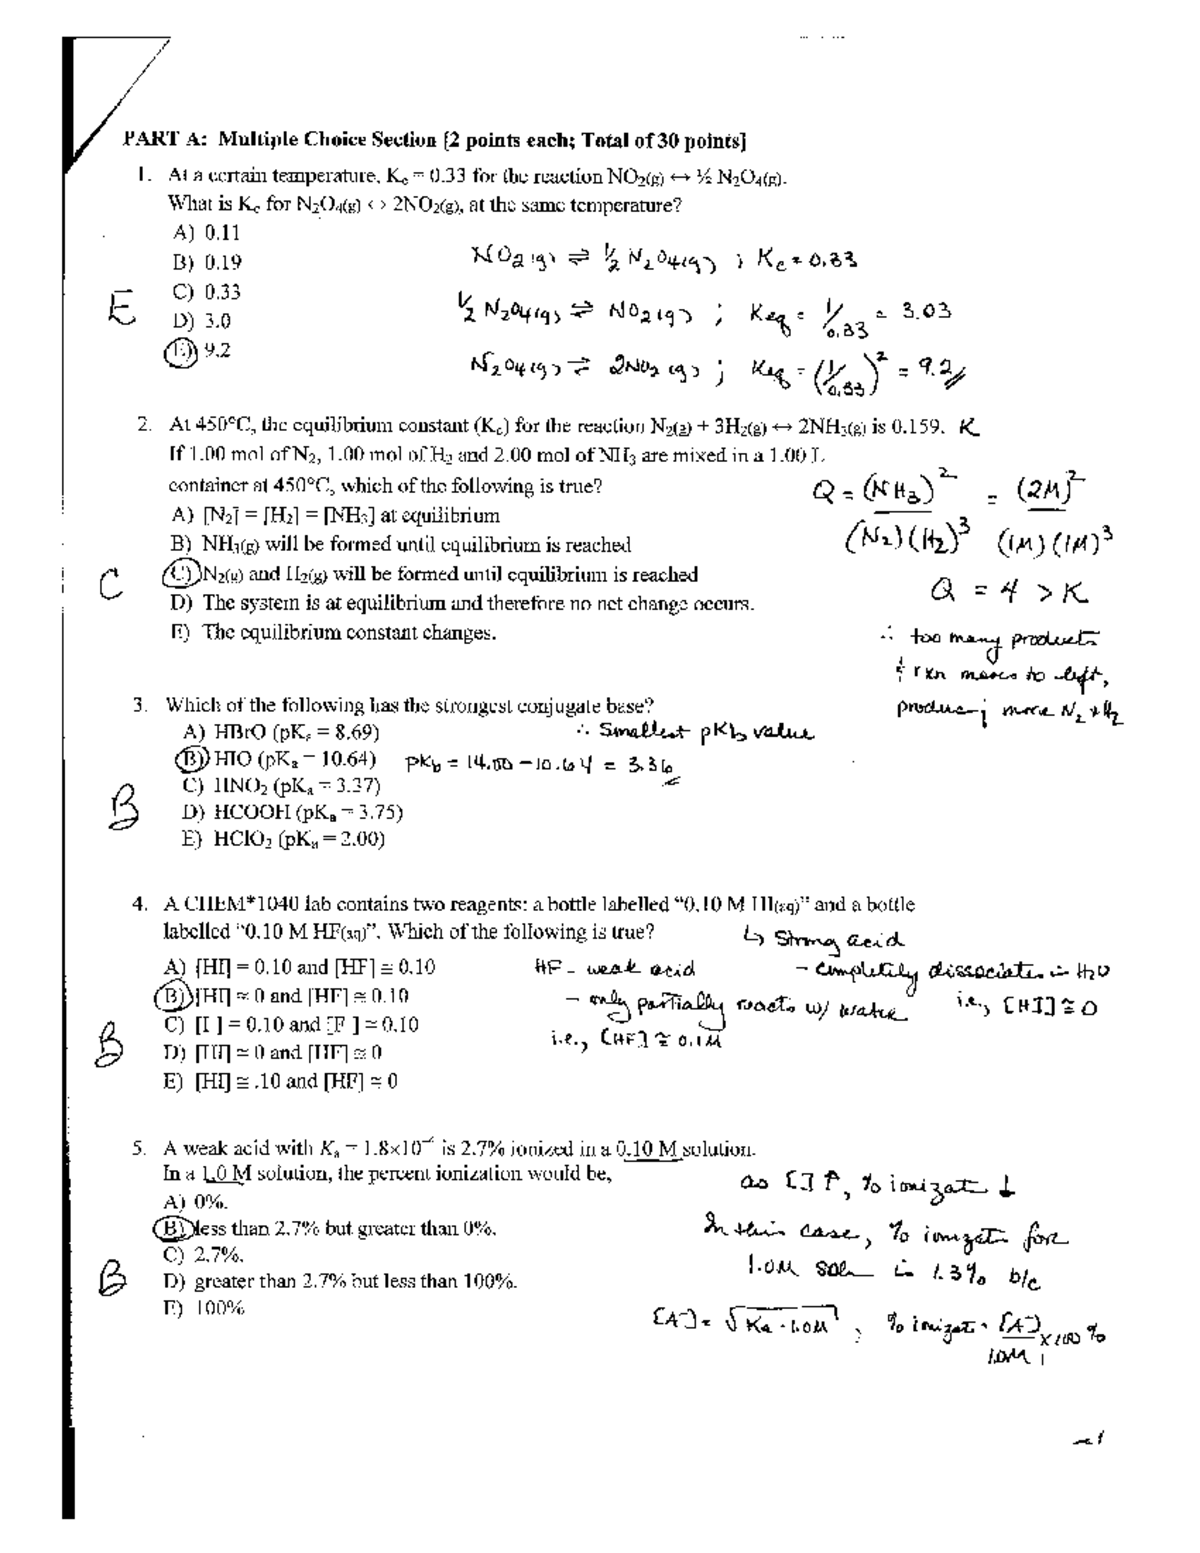 PART A: Multiple Choice Section [2 points each; Total of 30 points]
1. At a certain temperature, Kc = 0.33 for the reaction NO2(g) ↔ ½ N2O4(g).
What is Kc for N2O4(g) <> 2NO2(g), at the same temperature?
A) 0.11
B) 0.19
C) 0.33
D) 3.0
E) 9.2
E
NO2(g) ⇌ 1/2 N2O4(g) ; Kc = 0.33
1/2 N2O4(g) ⇌ NO2(g) ; Keq = 1/0.33 = 3.03
N2O4(g) ⇌ 2NO2(g) ; Keq = (1/0.33)² = 9.2
2. At 450°C, the equilibrium constant (Kc) for the reaction N2(g) + 3H2(g) ↔ 2NH3(g) is 0.159. K
If 1.00 mol of N2, 1.00 mol of H2 and 2.00 mol of NH3 are mixed in a 1.00 L
container at 450°C, which of the following is true?
A) [N2] = [H2] = [NH3] at equilibrium
B) NH3(g) will be formed until equilibrium is reached
C) N2(g) and H2(g) will be formed until equilibrium is reached
D) The system is at equilibrium and therefore no net change occurs.
E) The equilibrium constant changes.
C
Q = (NH3)² = (2M)²
(N2)(H2)³ (1M)(1M)³
Q = 4 > K
∴ too many products
& rxn moves to left,
producing more N2 + H2
3. Which of the following has the strongest conjugate base?
∴ Smallest pKb value
A) HBrO (pKa = 8.69)
B) HIO (pKa = 10.64) pKb = 14.00 - 10.64 = 3.36
C) HNO2 (pKa = 3.37)
D) HCOOH (pKa = 3.75)
E) HClO2 (pKa = 2.00)
B
4. A CHEM*1040 lab contains two reagents: a bottle labelled "0.10 M HI(aq)" and a bottle
labelled "0.10 M HF(aq)". Which of the following is true?
↳ Strong acid
- completely dissociates in H2O
i.e., [HI] ≅ 0
HF - weak acid
- only partially reacts w/ water
i.e., [HF] ≅ 0.1M
A) [HI] = 0.10 and [HF] ≅ 0.10
B) [HI] ≅ 0 and [HF] ≅ 0.10
C) [I ] = 0.10 and [F ] = 0.10
D) [HI] ≅ 0 and [HF] ≅ 0
E) [HI] ≅ .10 and [HF] ≅ 0
B
5. A weak acid with Ka = 1.8×10 is 2.7% ionized in a 0.10 M solution.
In a 1.0 M solution, the percent ionization would be,
A) 0%.
B) less than 2.7% but greater than 0%.
C) 2.7%.
D) greater than 2.7% but less than 100%.
E) 100%
B
as [ ] ↑, % ionizat ↓
In this case, % ionizat for
1.0M soln is 1.3% b/c
[A-] = √Ka · 1.0M , % ionizat = [A-] × 100 %
1.0M